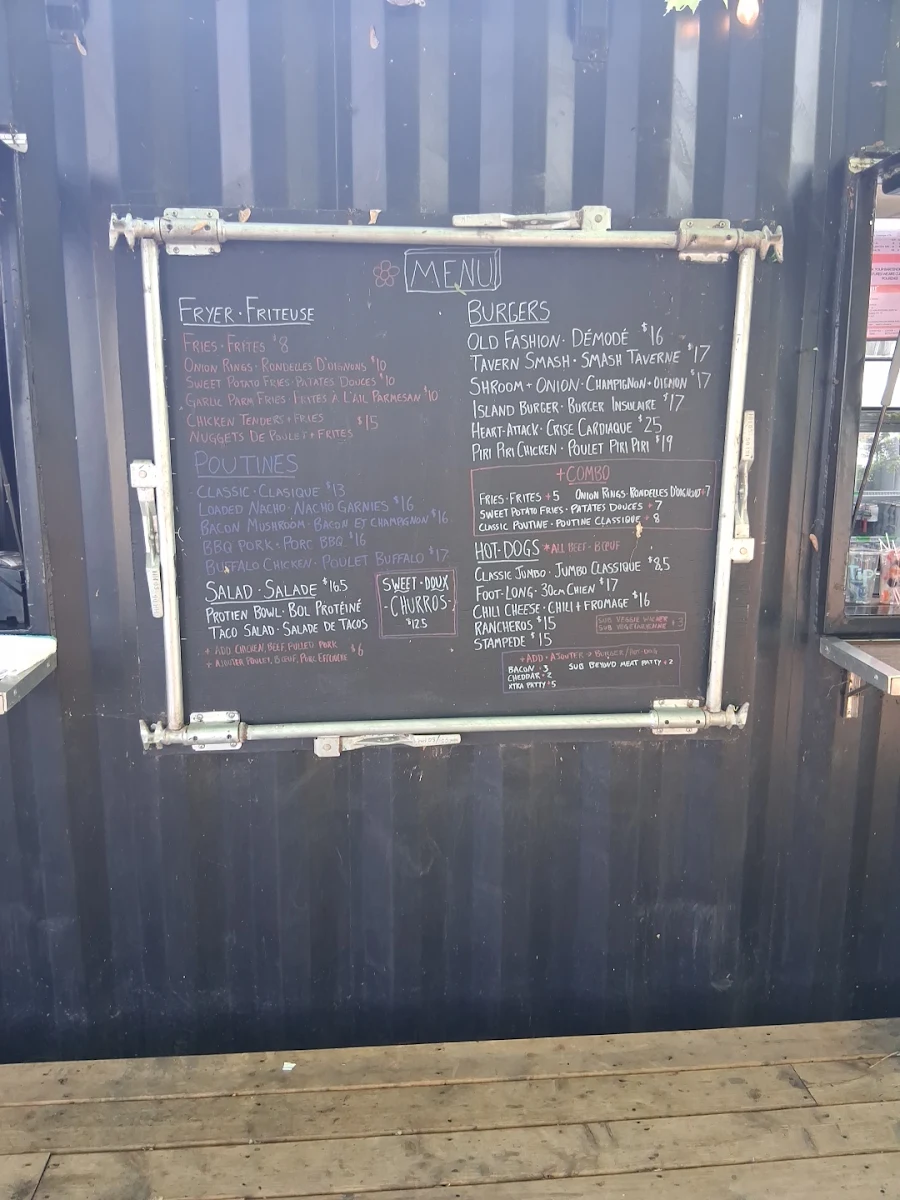 MENU
FRYER · FRITEUSE
FRIES · FRITES $8
ONION RINGS · RONDELLES D'OIGNONS $10
SWEET POTATO FRIES · PATATES DOUCES $10
GARLIC PARM FRIES · FRITES À L'AIL PARMESAN $10
CHICKEN TENDERS + FRIES $15
NUGGETS DE POULET + FRITES
POUTINES
CLASSIC · CLASIQUE $13
LOADED NACHO · NACHO GARNIES $16
BACON MUSHROOM · BACON ET CHAMPIGNON $16
BBQ PORK · PORC BBQ $16
BUFFALO CHICKEN · POULET BUFFALO $17
SALAD · SALADE $16.5
PROTIEN BOWL · BOL PROTÉINÉ
TACO SALAD · SALADE DE TACOS
+ ADD CHICKEN, BEEF, PULLED PORK $6
+ AJOUTER POULET, BŒUF, PORC EFFILOCHÉ
SWEET · DOUX
- CHURROS -
$12.5
BURGERS
OLD FASHION · DÉMODÉ $16
TAVERN SMASH · SMASH TAVERNE $17
SHROOM + ONION · CHAMPIGNON + OIGNON $17
ISLAND BURGER · BURGER INSULAIRE $17
HEART-ATTACK · CRISE CARDIAQUE $25
PIRI PIRI CHICKEN · POULET PIRI PIRI $19
+ COMBO
FRIES · FRITES +5 ONION RINGS · RONDELLES D'OIGNONS +7
SWEET POTATO FRIES · PATATES DOUCES + 7
CLASSIC POUTINE · POUTINE CLASSIQUE + 8
HOT-DOGS *ALL BEEF · BŒUF
CLASSIC JUMBO · JUMBO CLASSIQUE $8.5
FOOT-LONG · 30CM CHIEN $17
CHILI CHEESE · CHILI + FROMAGE $16
RANCHEROS $15
STAMPEDE $15
SUB VEGGIE +3
SUB VEGETARIENNE
+ ADD · AJOUTER → BURGER / HOT-DOG
BACON + 3 SUB BEYOND MEAT PATTY + 2
CHEDDAR + 2
XTRA PATTY + 5